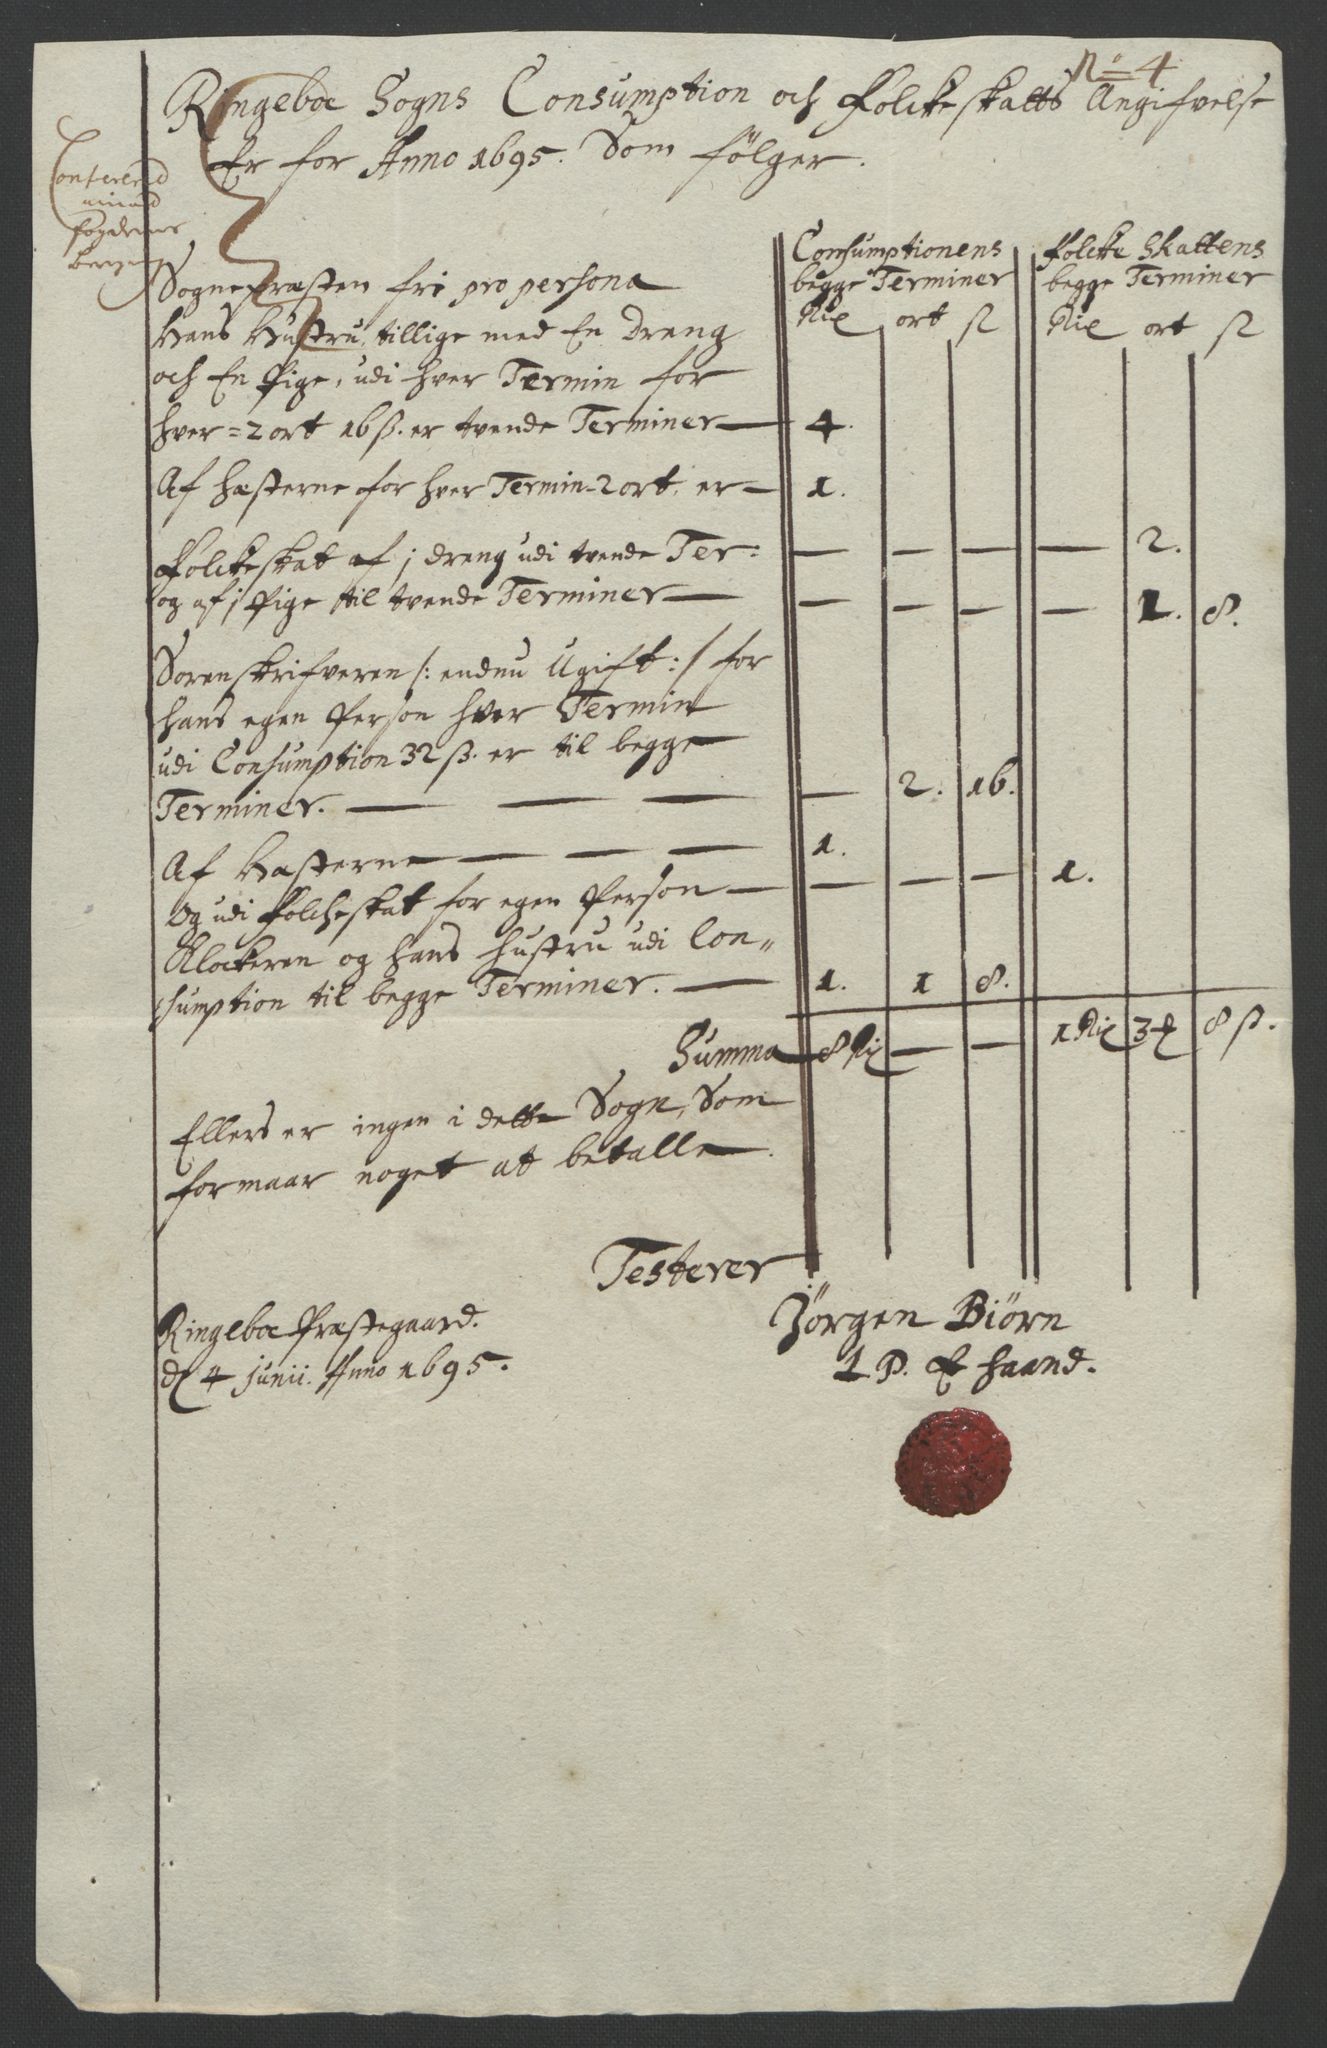 No 4
Ringeboe Sogns Consumption och Folckeskatts Angifvelse
Er for Anno 1695. Som følger.
Confererid
fogderiens
Consumptionens Folcke Skattens
begge Terminer begge Terminer
Sognepræsten fri pro persona
Rix ort ß Rix ort ß
Hans Hustru, tillige med En Dreng
och En Pige, udi hver Termin for
hver = 2 ort 16 ß. er tvende Terminer — 4.
Af Hæsterne for hver Termin - 2 ort, er — 1.
Folckeskat af j dreng udi tvende Ter: — — — — 2.
og af j Pige til tvende Terminer — — — — — 1. 8.
Sorenskrifveren /: endnu Ugift :/ for
hans egen Person hver Termin
udi Consumption 32 ß. er til begge
Terminer. — — — — 2. 16.
Af Hæsterne — — — 1.
Og udi Folcheskat for egen Person — — — — 1.
Klockeren og hans hustru udi Con„
sumption til begge Terminer. — 1. 1 8.
Summa 8 Rix — — 1 Rix 3 ℔ 8 ß.
Ellers er ingen i dette Sogn, Som
formaar noget at betalle.
Testerer
Ringeboe Præstegaard. Jörgen Biörn
d 4 Junii. Anno 1695. L. P. E haand.